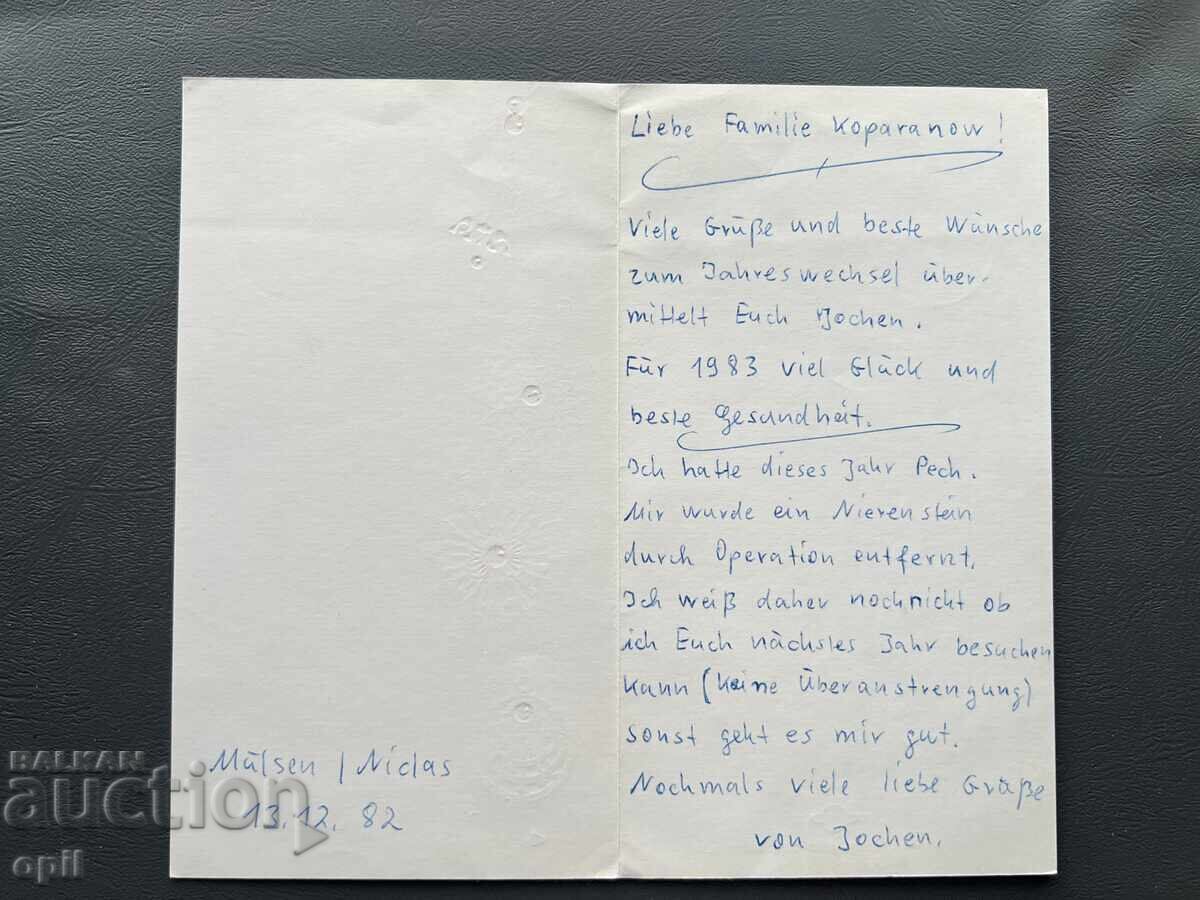 Mülsen / Niclas
13.12.82
Liebe Familie Koparanow!
Viele Grüße und beste Wünsche
zum Jahreswechsel über-
mittelt Euch Jochen.
Für 1983 viel Glück und
beste Gesundheit.
Ich hatte dieses Jahr Pech.
Mir wurde ein Nierenstein
durch Operation entfernt.
Ich weiß daher nochnicht ob
ich Euch nächstes Jahr besuchen
kann (keine Überanstrengung)
sonst geht es mir gut.
Nochmals viele liebe Grüße
von Jochen.
BALKAN
auction
opll